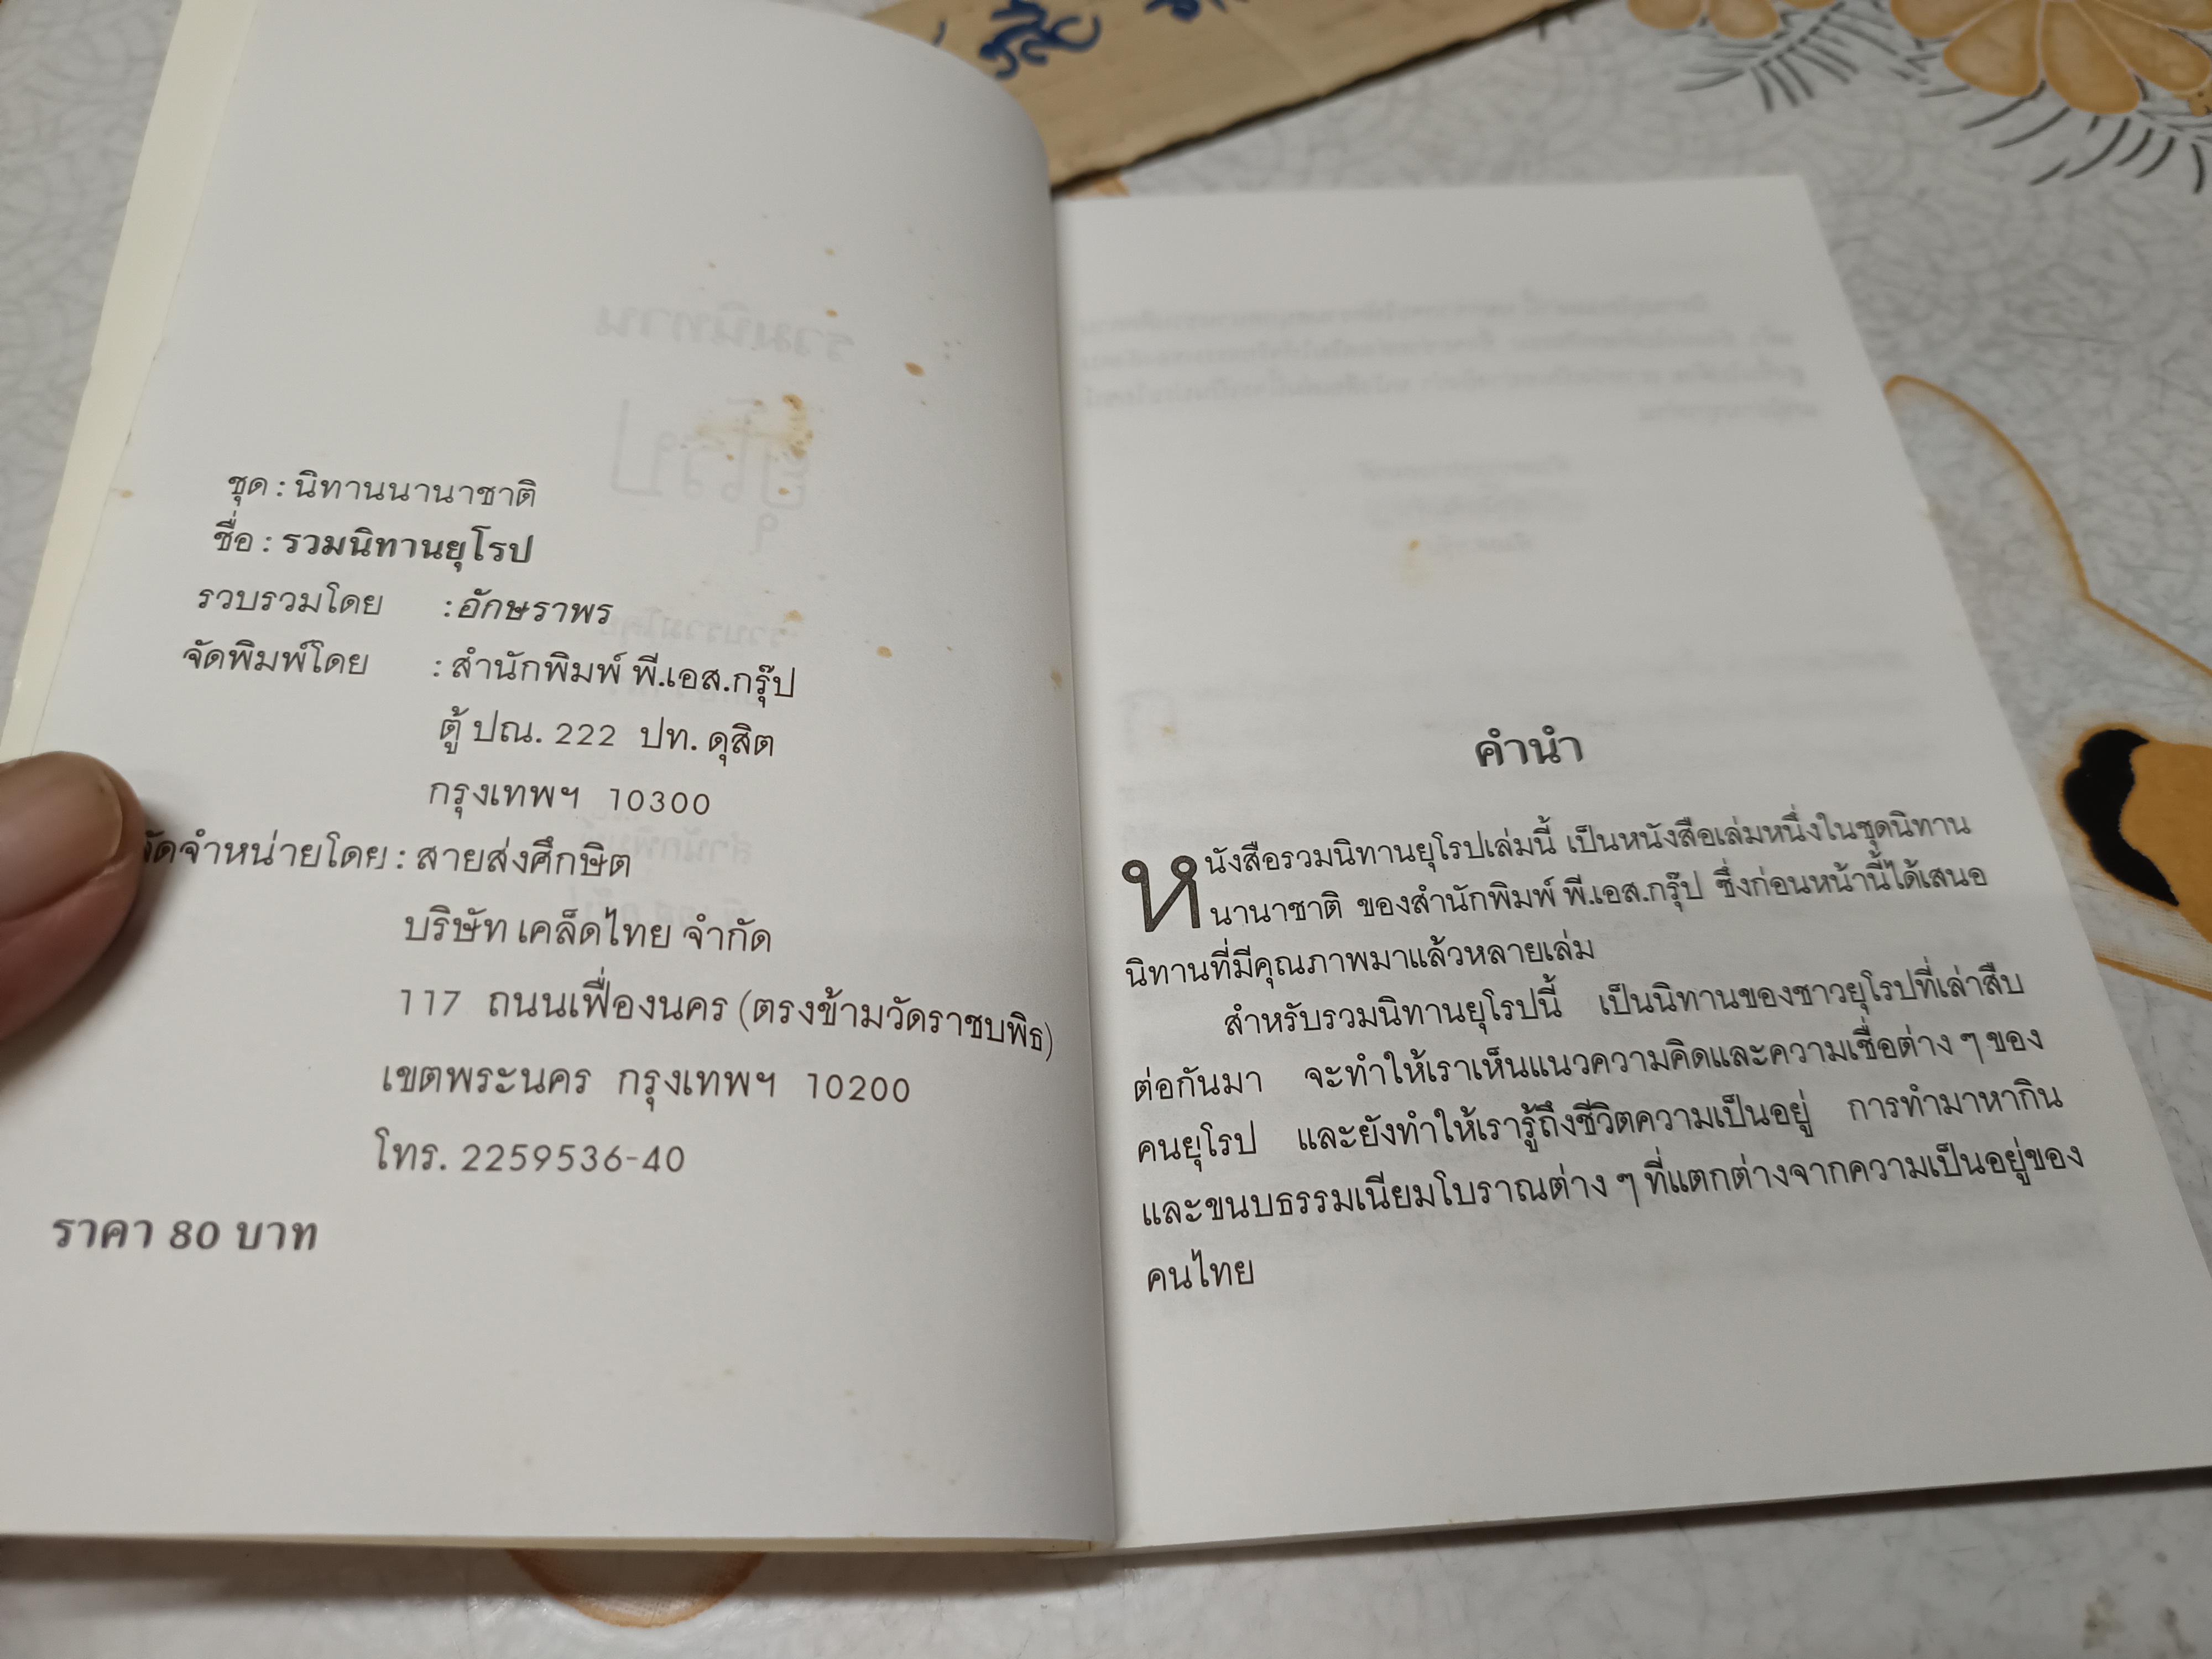 ชุด : นิทานนานาชาติ
ชื่อ : รวมนิทานยุโรป
รวบรวมโดย : อักษราพร
จัดพิมพ์โดย : สำนักพิมพ์ พี.เอส.กรุ๊ป
ตู้ ปณ. 222 ปท. ดุสิต
กรุงเทพฯ 10300
จัดจำหน่ายโดย : สายส่งศึกษิต
บริษัท เคล็ดไทย จำกัด
117 ถนนเฟื่องนคร (ตรงข้ามวัดราชบพิธ)
เขตพระนคร กรุงเทพฯ 10200
โทร. 2259536-40
ราคา 80 บาท
คำนำ
หนังสือรวมนิทานยุโรปเล่มนี้ เป็นหนังสือเล่มหนึ่งในชุดนิทาน
นานาชาติ ของสำนักพิมพ์ พี.เอส.กรุ๊ป ซึ่งก่อนหน้านี้ได้เสนอ
นิทานที่มีคุณภาพมาแล้วหลายเล่ม
สำหรับรวมนิทานยุโรปนี้ เป็นนิทานของชาวยุโรปที่เล่าสืบ
ต่อกันมา จะทำให้เราเห็นแนวความคิดและความเชื่อต่าง ๆ ของ
คนยุโรป และยังทำให้เรารู้ถึงชีวิตความเป็นอยู่ การทำมาหากิน
และขนบธรรมเนียมโบราณต่าง ๆ ที่แตกต่างจากความเป็นอยู่ของ
คนไทย